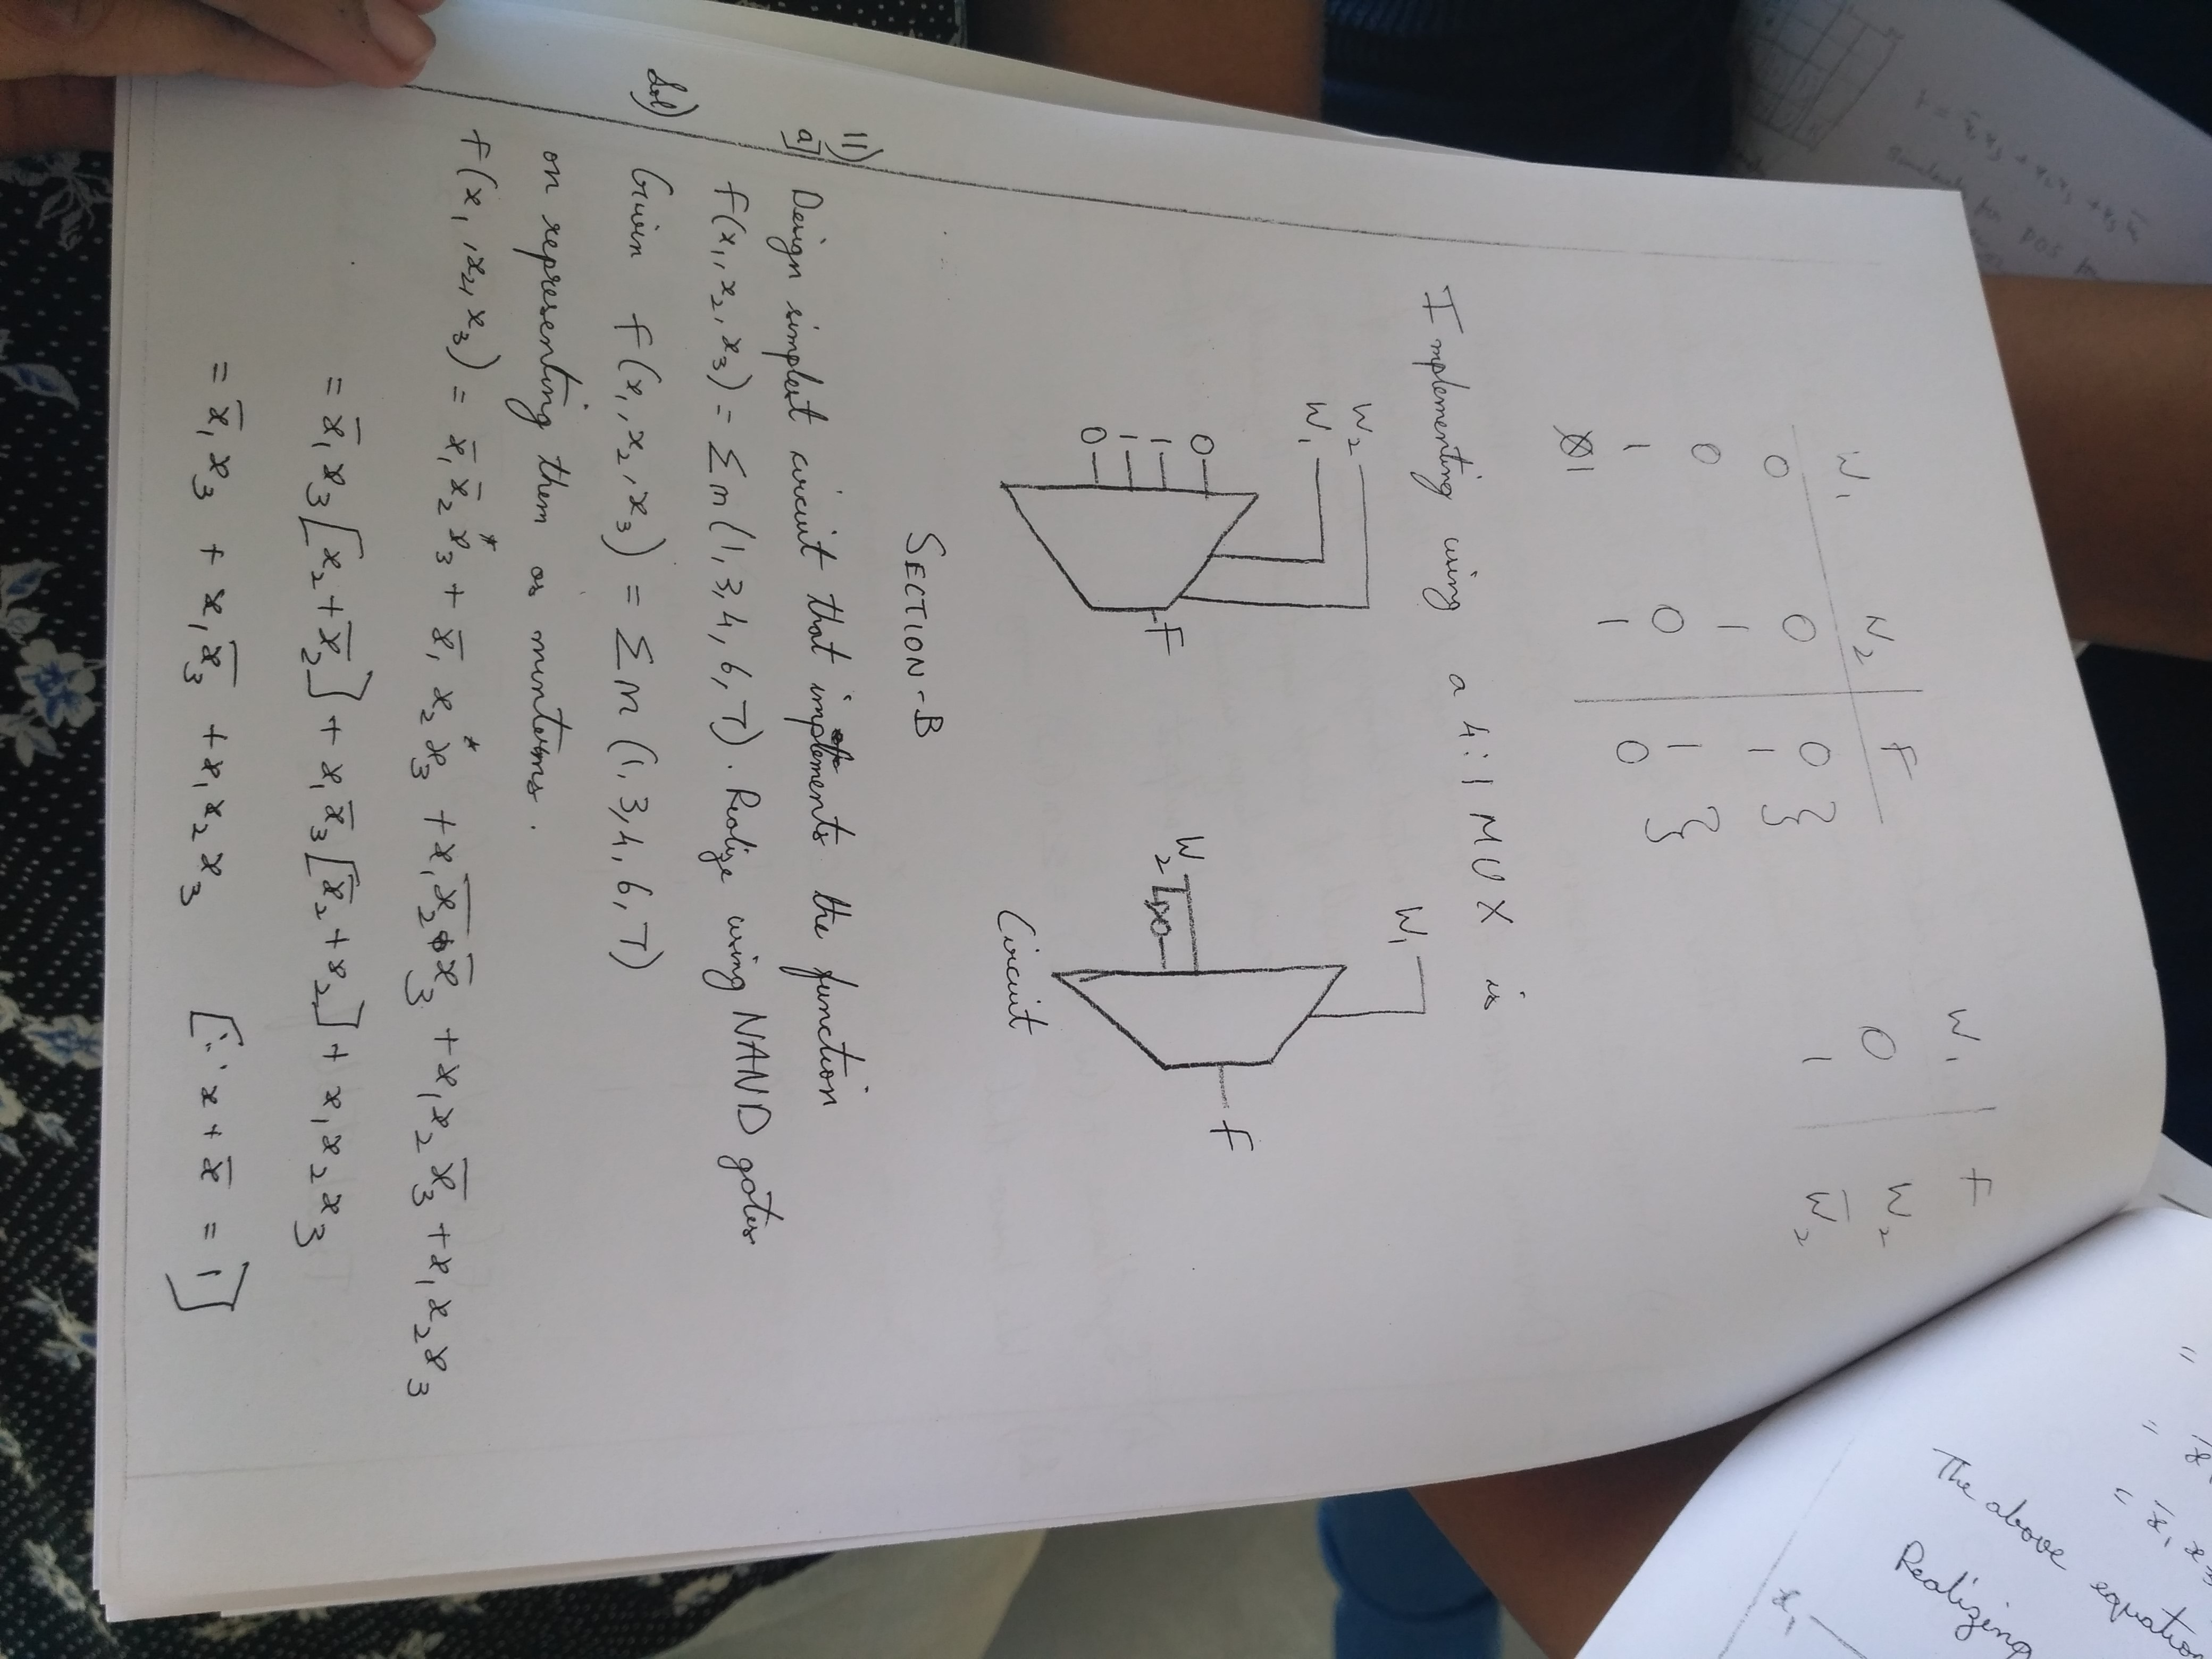 W₁ W₂ F
0 0 0 }
0 1 1
1 0 1 }
1 1 0
W₁ F
0 W₂
1 W̅₂
Implementing using a 4:1 MUX is
W₂
W₁
0
1
1
0
F
W₁
W₂
F
Circuit
SECTION-B
11)
a] Design simplest circuit that implements the function
f(x₁,x₂,x₃) = Σm(1,3,4,6,7). Realize using NAND gates
Sol) Given f(x₁,x₂,x₃) = Σm(1,3,4,6,7)
on representing them as minterms.
f(x₁,x₂,x₃) = x̅₁x̅₂x₃* + x̅₁x₂x₃* + x₁x̅₂x̅₃ + x₁x₂x̅₃ + x₁x₂x₃
= x̅₁x₃[x₂+x̅₂] + x₁x̅₃[x̅₂+x₂] + x₁x₂x₃
= x̅₁x₃ + x₁x̅₃ + x₁x₂x₃ [∵ x+x̅ = 1]
The above equation
Realizing